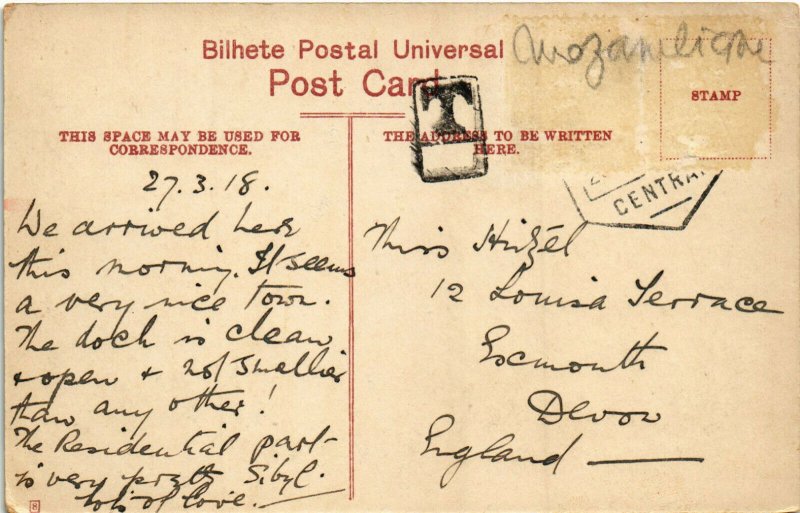 Bilhete Postal Universal
Post Card
Mozambique
STAMP
T
THIS SPACE MAY BE USED FOR
CORRESPONDENCE.
THE ADDRESS TO BE WRITTEN
HERE.
CENTRA
27.3.18.
We arrived here
this morning. It seems
a very nice town.
The dock is clean
& open & not smellier
than any other!
The Residential part
is very pretty Sibyl.
lots of love.
Miss
12 Louisa Terrace
Exmouth
Devon
England
8